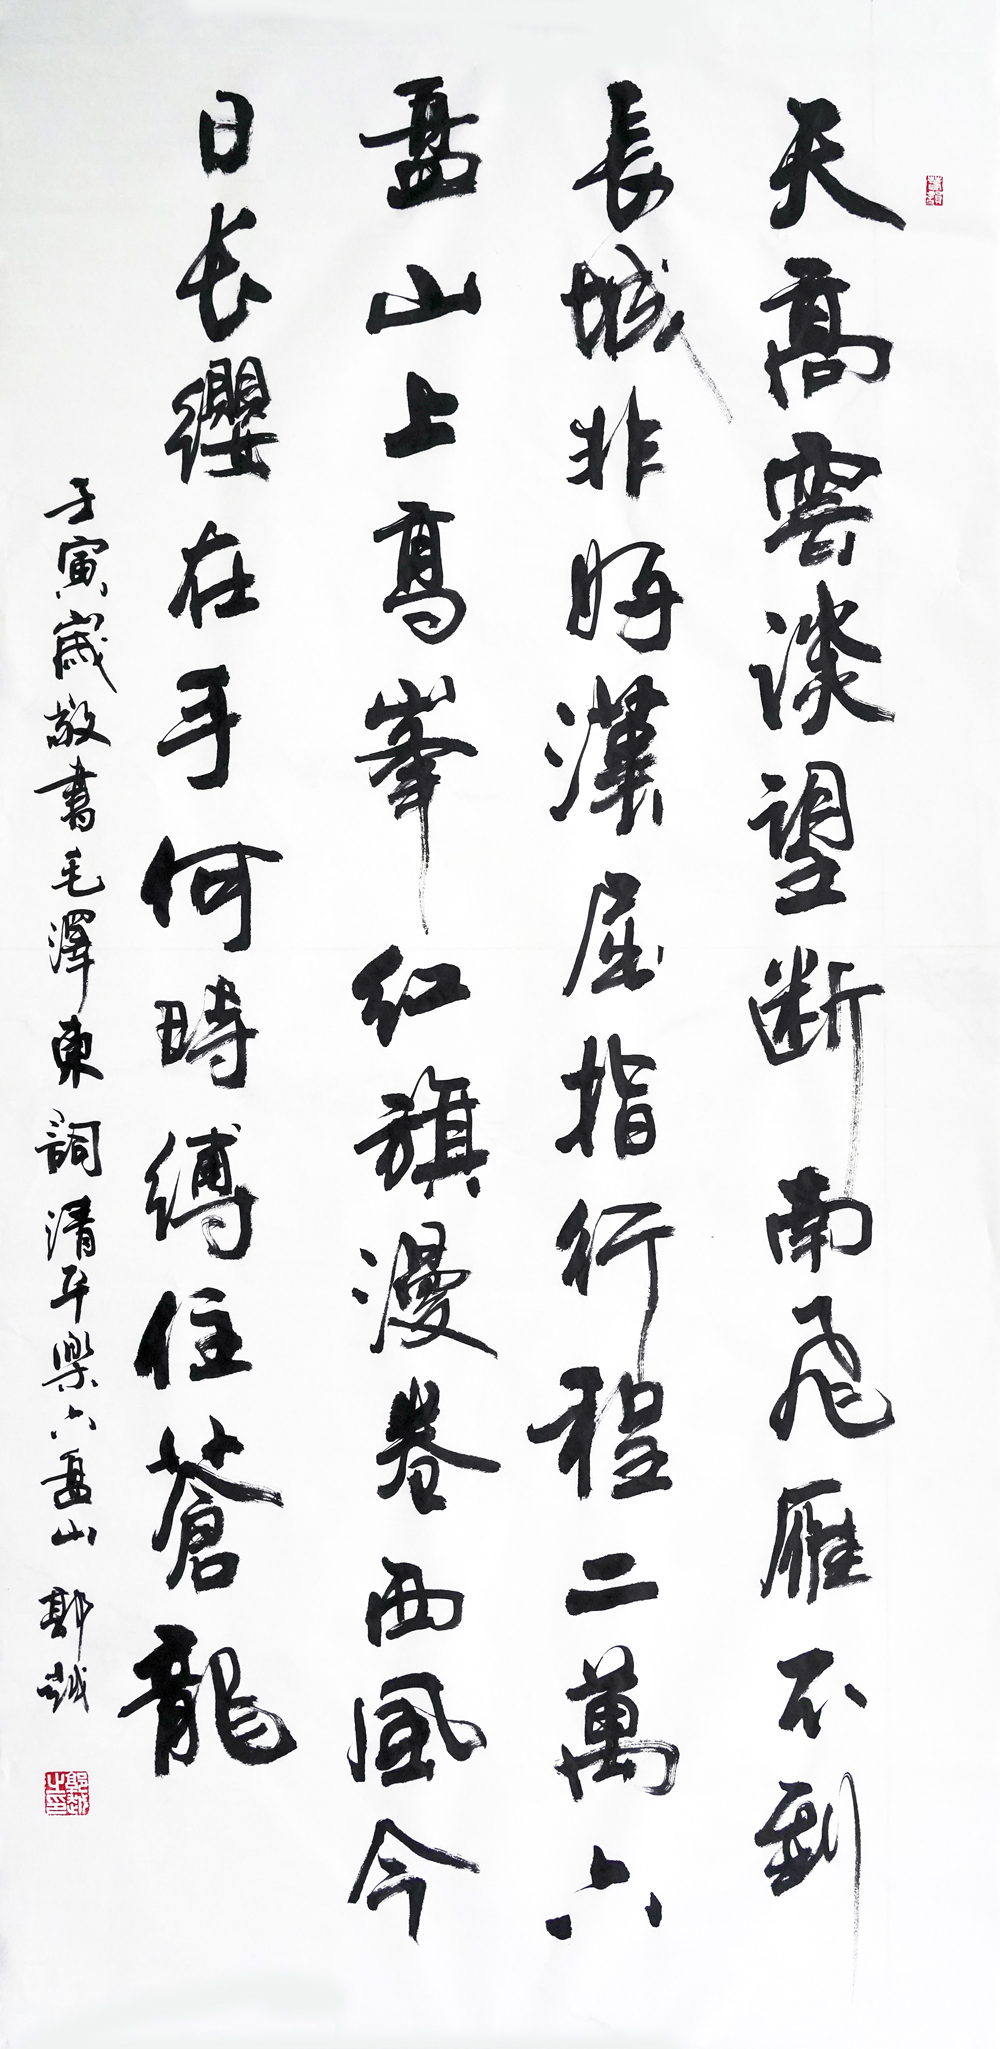 天高雲淡望断南飛雁不到
長城非好漢屈指行程二萬六
盘山上高峯红旗漫卷西風今
日长纓在手何時縛住蒼龍
壬寅歲敬書毛澤東詞清平樂六盘山 郭越
郭越之印